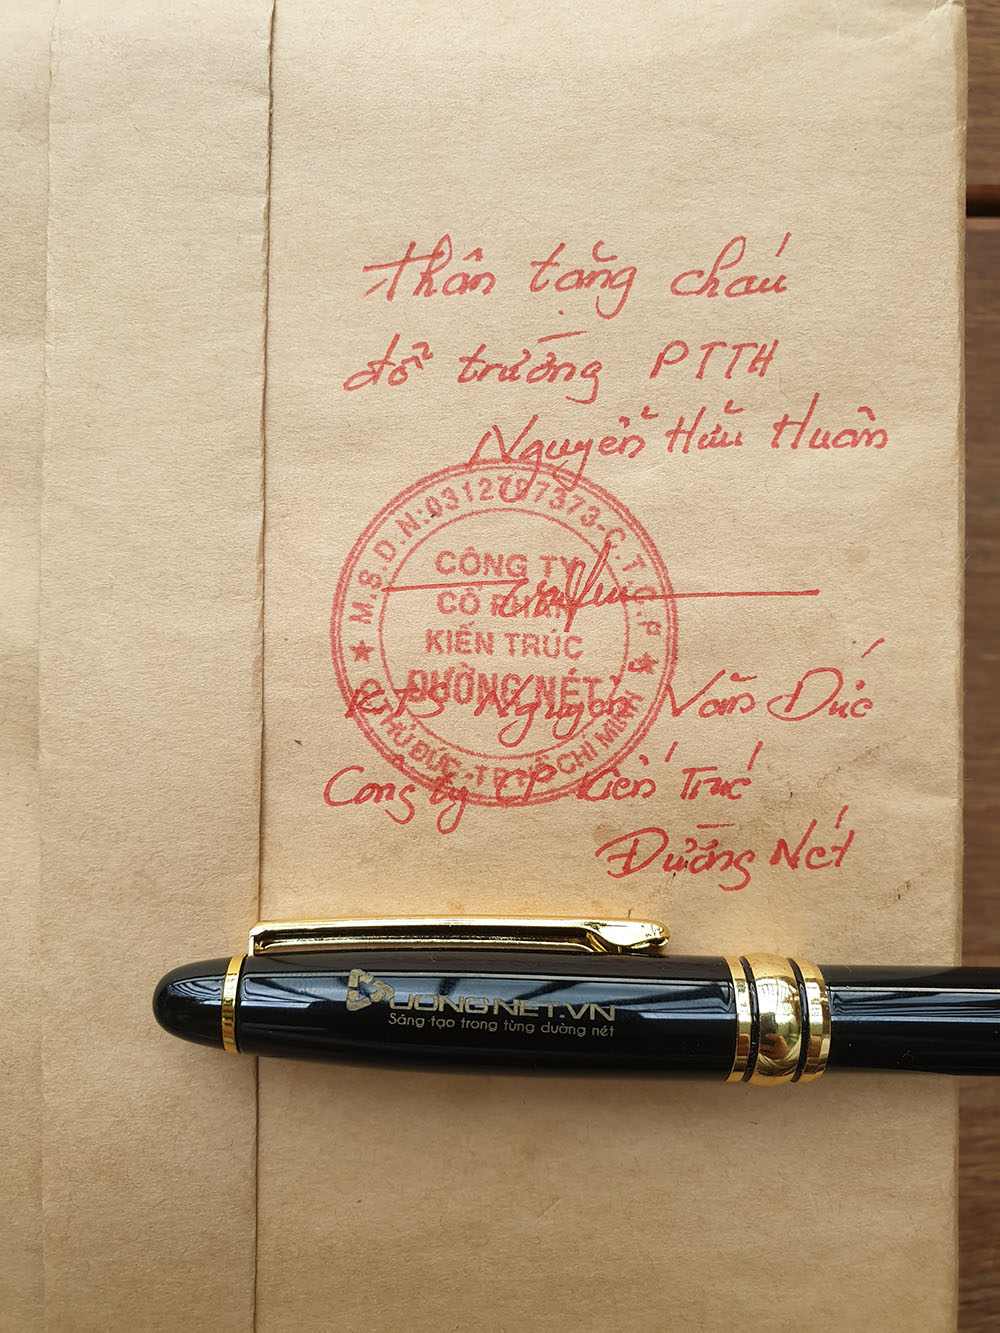 Thân tặng cháu
đỗ trường PTTH
Nguyễn Hữu Huân
M.S.D.N:0312797373-C.T.C.P
CÔNG TY
CỔ PHẦN
KIẾN TRÚC
ĐƯỜNG NÉT
Q.THỦ ĐỨC-TP.HỒ CHÍ MINH
KTS Nguyễn Văn Đức
Công ty CP Kiến Trúc
Đường Nét
DUONGNET.VN
Sáng tạo trong từng đường nét